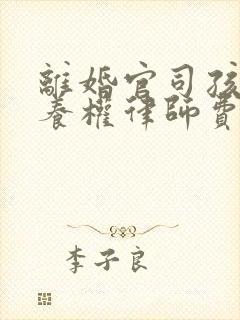 離婚官司孩
養權律師費
李子良